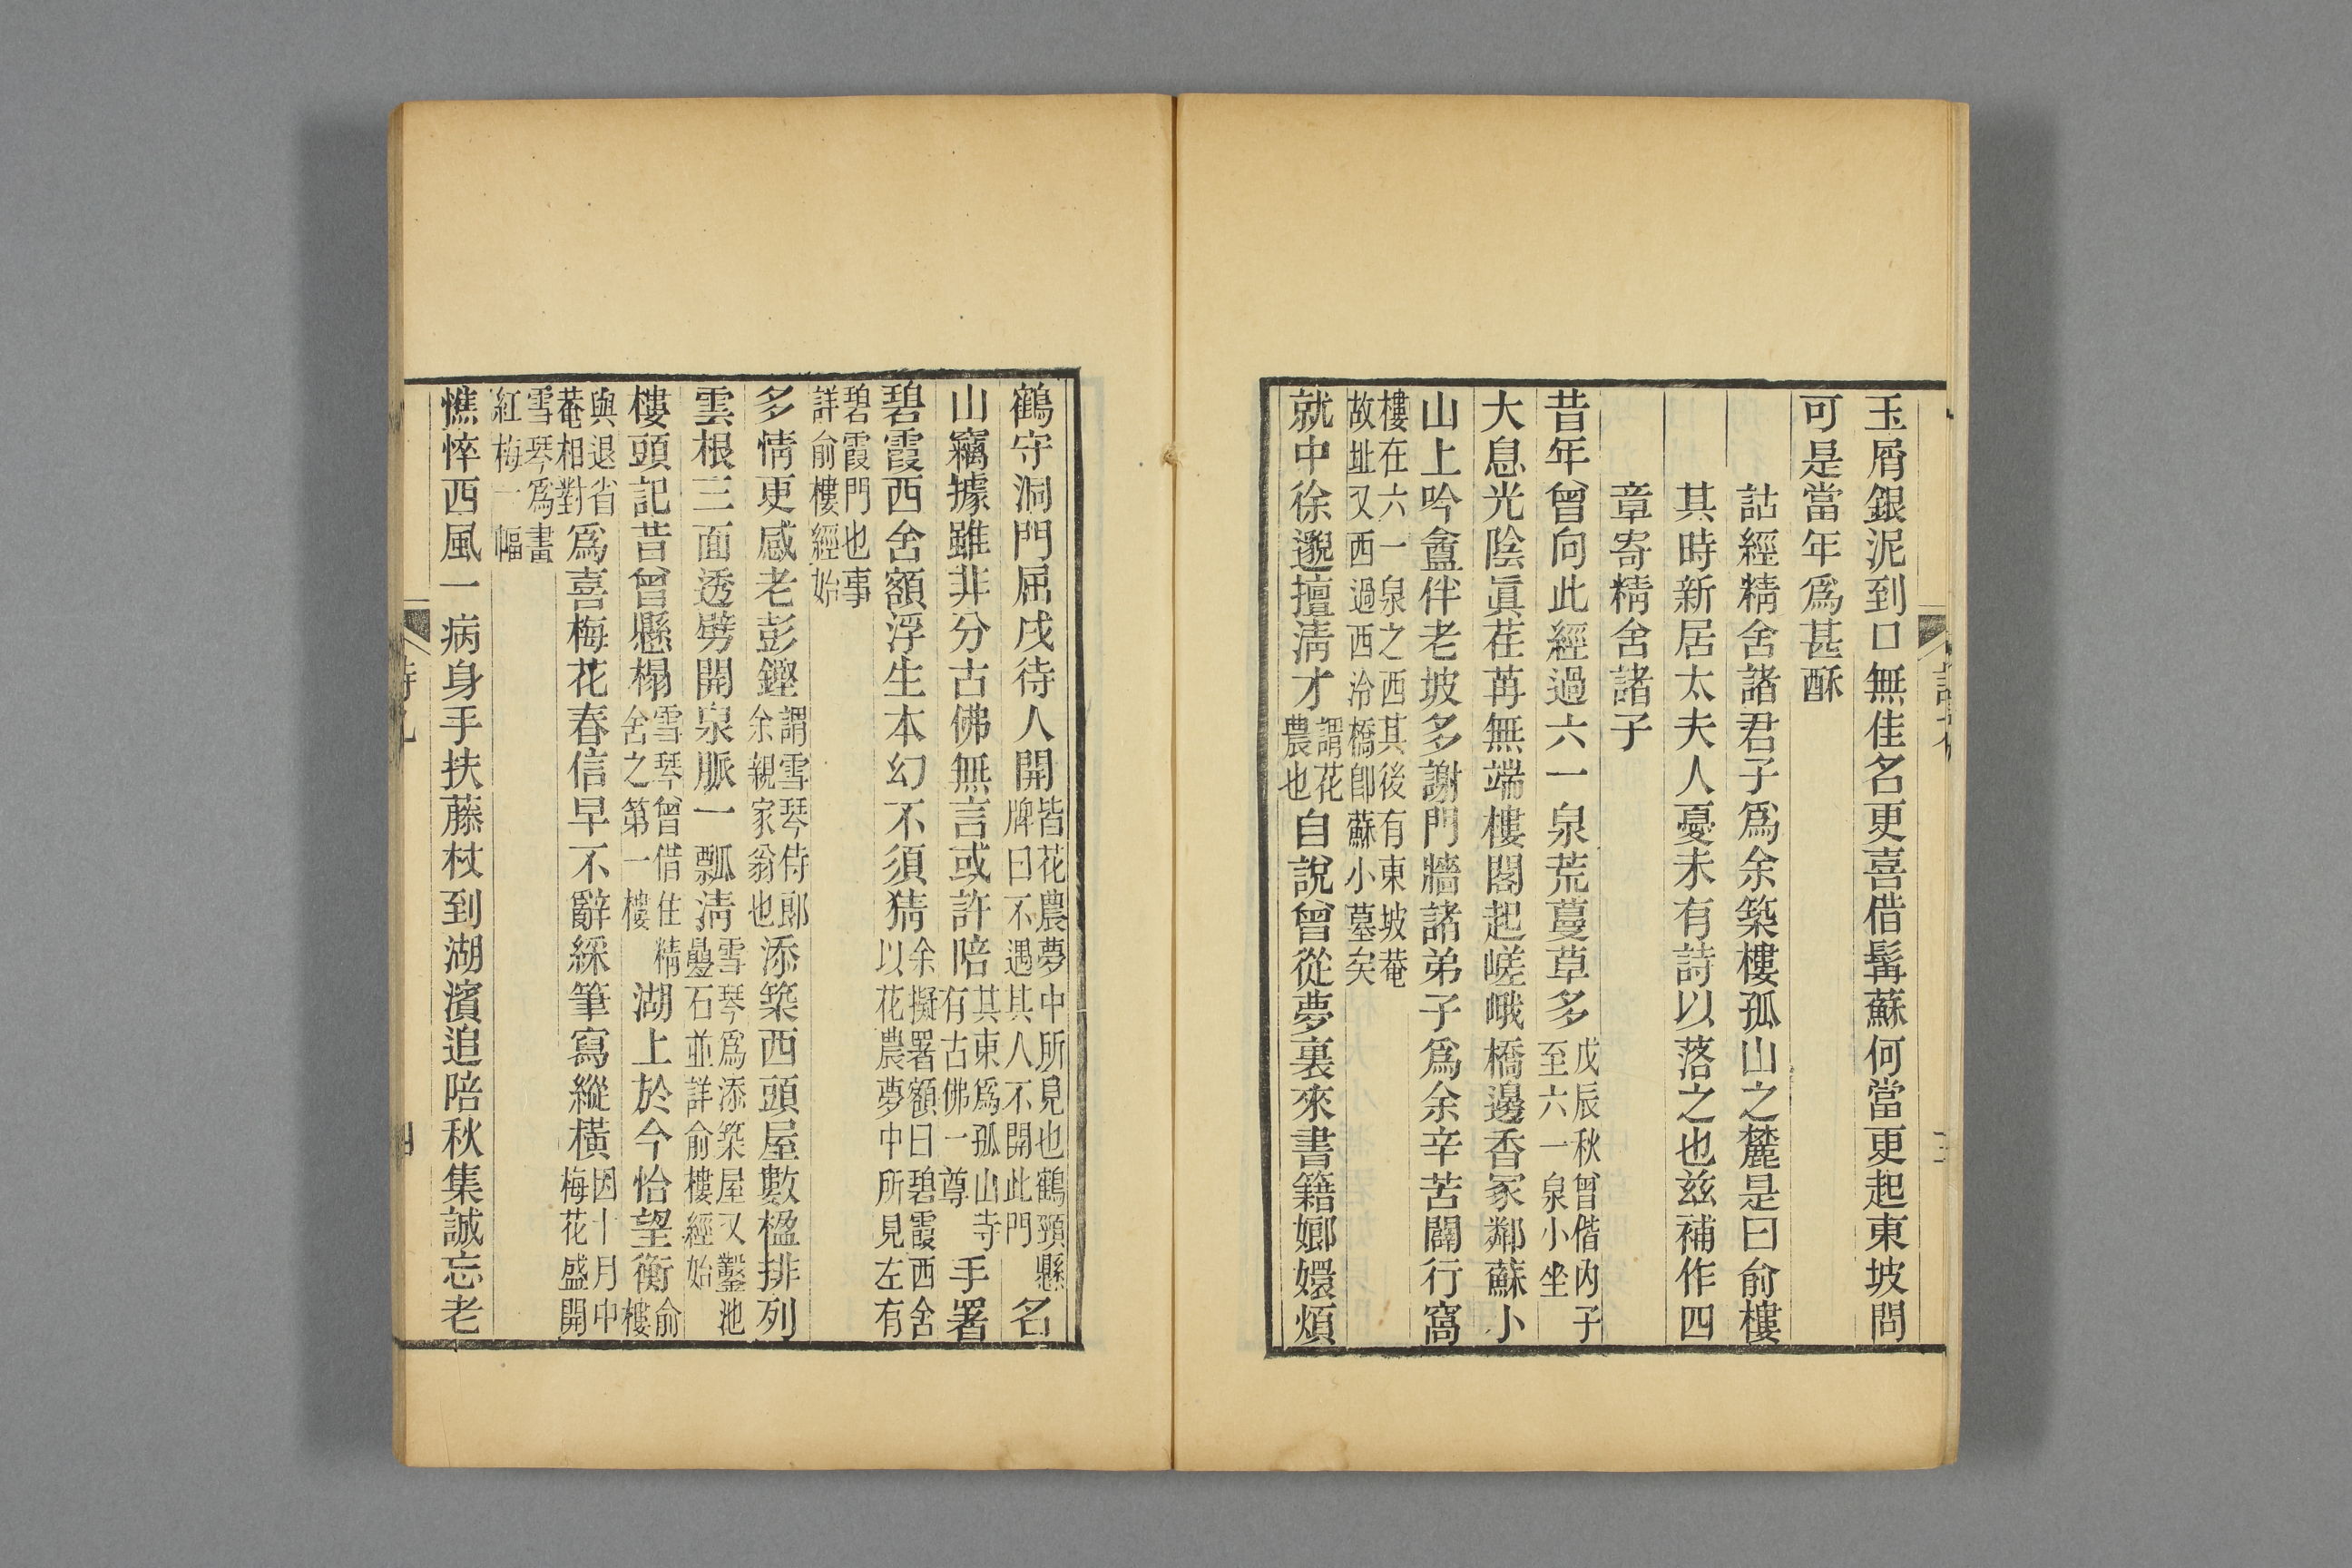 玉屑銀泥到口無佳名更喜借髯蘇何當更起東坡問
可是當年爲甚酥
詁經精舍諸君子爲余築樓孤山之麓是曰俞樓
其時新居太夫人憂未有詩以落之也兹補作四
章寄精舍諸子
昔年曾向此經過六一泉荒蔓草多戊辰秋曾偕内子至六一泉小坐
大息光陰眞荏苒無端樓閣起嵯峨橋邊香冢鄰蘇小
山上吟盦伴老坡多謝門牆諸弟子爲余辛苦闢行窩
樓在六一泉之西其後有東坡菴
故址又西過西泠橋卽蘇小墓矣
就中徐邈擅淸才謂花農也自說曾從夢裏來書籍嫏嬛煩
鶴守洞門屈戌待人開皆花農夢中所見也鶴頸懸牌曰不遇其人不開此門名
山竊據雖非分古佛無言或許陪其東爲孤山寺有古佛一尊手署
碧霞西舍額浮生本幻不須猜余擬署額曰碧霞西舍以花農夢中所見左有
碧霞門也事
詳俞樓經始
多情更感老彭鏗謂雪琴侍郎余親家翁也添築西頭屋數楹排列
雲根三面透劈開泉脈一瓢淸雪琴爲添築屋又鑿池壘石並詳俞樓經始
樓頭記昔曾懸榻雪琴曾借住精舍之第一樓湖上於今恰望衡俞樓
與退省
菴相對爲喜梅花春信早不辭綵筆寫縱橫因十月中梅花盛開
雪琴爲畫
紅梅一幅
憔悴西風一病身手扶藤杖到湖濱追陪秋集誠忘老
詩九
四